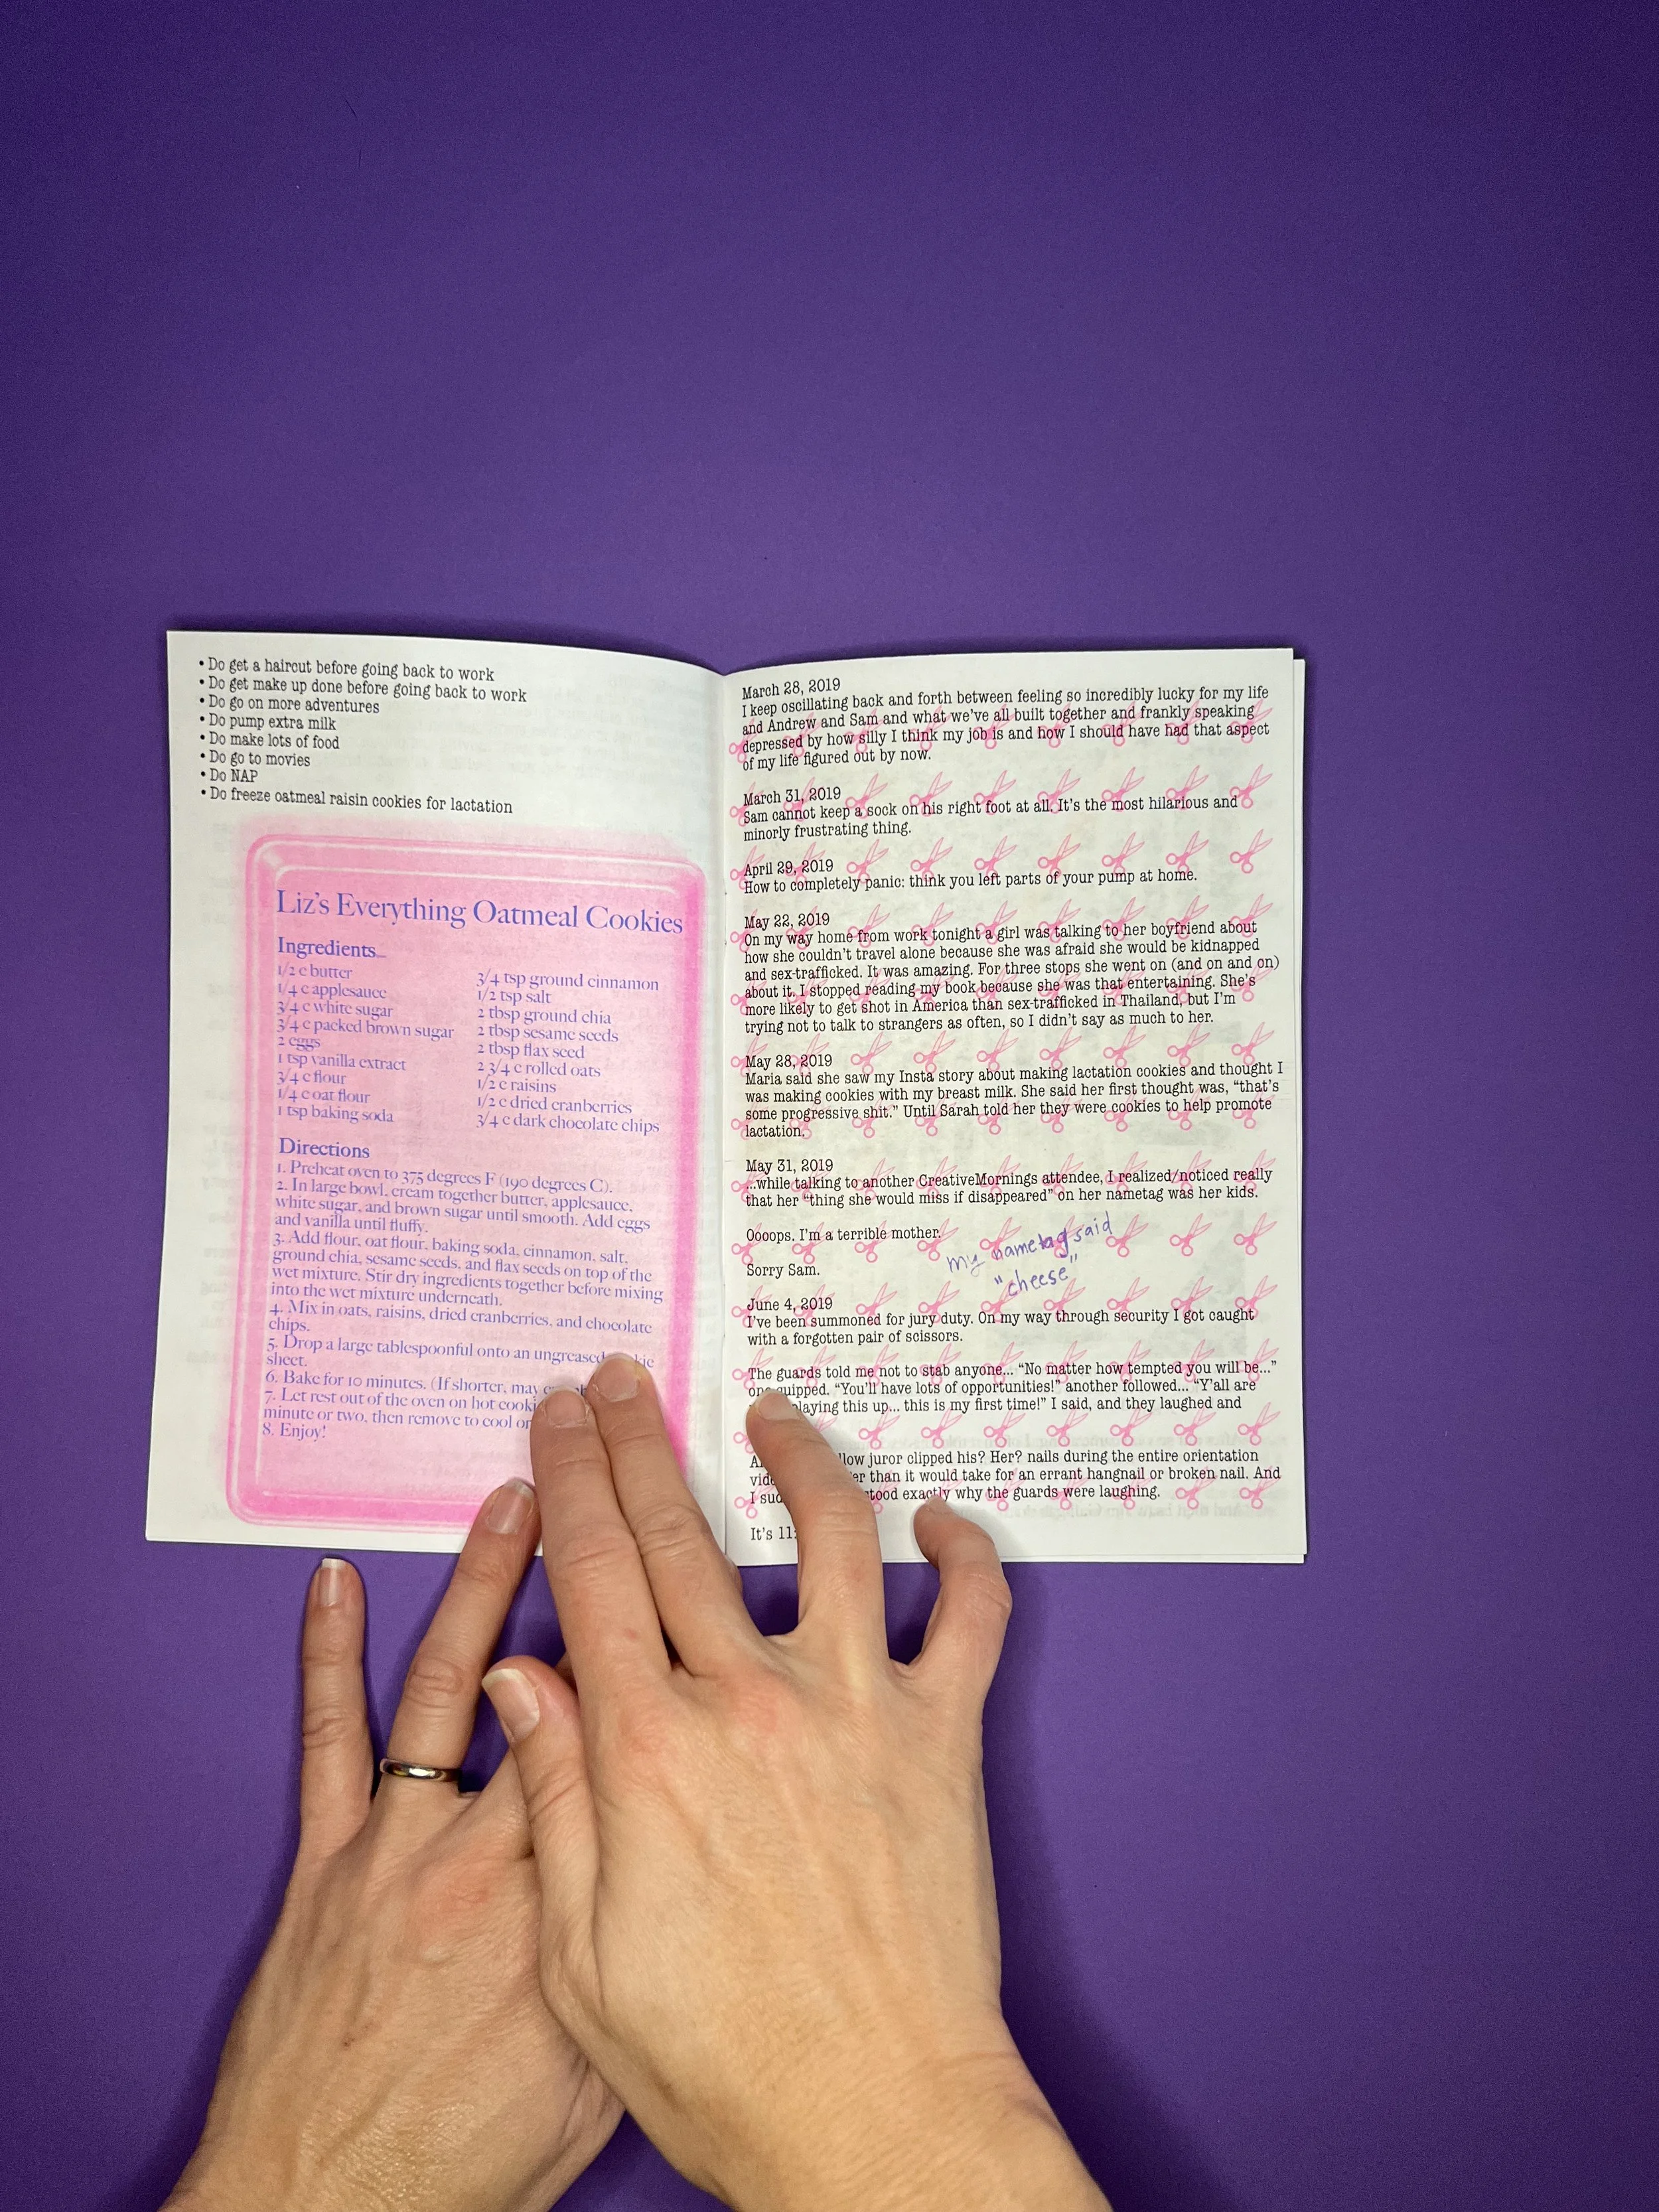 • Do get a haircut before going back to work
• Do get make up done before going back to work
• Do go on more adventures
• Do pump extra milk
• Do make lots of food
• Do go to movies
• Do NAP
• Do freeze oatmeal raisin cookies for lactation
Liz's Everything Oatmeal Cookies
Ingredients
1/2 c butter
1/4 c applesauce
3/4 c white sugar
3/4 c packed brown sugar
2 eggs
1 tsp vanilla extract
3/4 c flour
1/4 c oat flour
1 tsp baking soda
3/4 tsp ground cinnamon
1/2 tsp salt
2 tbsp ground chia
2 tbsp sesame seeds
2 tbsp flax seed
2 3/4 c rolled oats
1/2 c raisins
1/2 c dried cranberries
3/4 c dark chocolate chips
Directions
1. Preheat oven to 375 degrees F (190 degrees C).
2. In large bowl, cream together butter, applesauce,
white sugar, and brown sugar until smooth. Add eggs
and vanilla until fluffy.
3. Add flour, oat flour, baking soda, cinnamon, salt,
ground chia, sesame seeds, and flax seeds on top of the
wet mixture. Stir dry ingredients together before mixing
into the wet mixture underneath.
4. Mix in oats, raisins, dried cranberries, and chocolate
chips.
5. Drop a large tablespoonful onto an ungreased
sheet.
6. Bake for 10 minutes. (If shorter, may
7. Let rest out of the oven on hot
minute or two, then remove to cool
8. Enjoy!
March 28, 2019
I keep oscillating back and forth between feeling so incredibly lucky for my life
and Andrew and Sam and what we've all built together and frankly speaking
depressed by how silly I think my job is and how I should have had that aspect
of my life figured out by now.
March 31, 2019
Sam cannot keep a sock on his right foot at all. It's the most hilarious and
minorly frustrating thing.
April 29, 2019
How to completely panic: think you left parts of your pump at home.
May 22, 2019
On my way home from work tonight a girl was talking to her boyfriend about
how she couldn't travel alone because she was afraid she would be kidnapped
and sex-trafficked. It was amazing. For three stops she went on (and on and on)
about it. I stopped reading my book because she was that entertaining. She's
more likely to get shot in America than sex-trafficked in Thailand, but I'm
trying not to talk to strangers as often, so I didn't say as much to her.
May 28, 2019
Maria said she saw my Insta story about making lactation cookies and thought I
was making cookies with my breast milk. She said her first thought was, "that's
some progressive shit." Until Sarah told her they were cookies to help promote
lactation.
May 31, 2019
...while talking to another CreativeMornings attendee, I realized/noticed really
that her "thing she would miss if disappeared" on her nametag was her kids.
Oooops. I'm a terrible mother.
my nametag said
"cheese"
Sorry Sam.
June 4, 2019
I've been summoned for jury duty. On my way through security I got caught
with a forgotten pair of scissors.
The guards told me not to stab anyone... "No matter how tempted you will be..."
one quipped. "You'll have lots of opportunities!" another followed... "Y'all are
playing this up... this is my first time!" I said, and they laughed and
juror clipped his? Her? nails during the entire orientation
than it would take for an errant hangnail or broken nail. And
I exactly why the guards were laughing.
It's